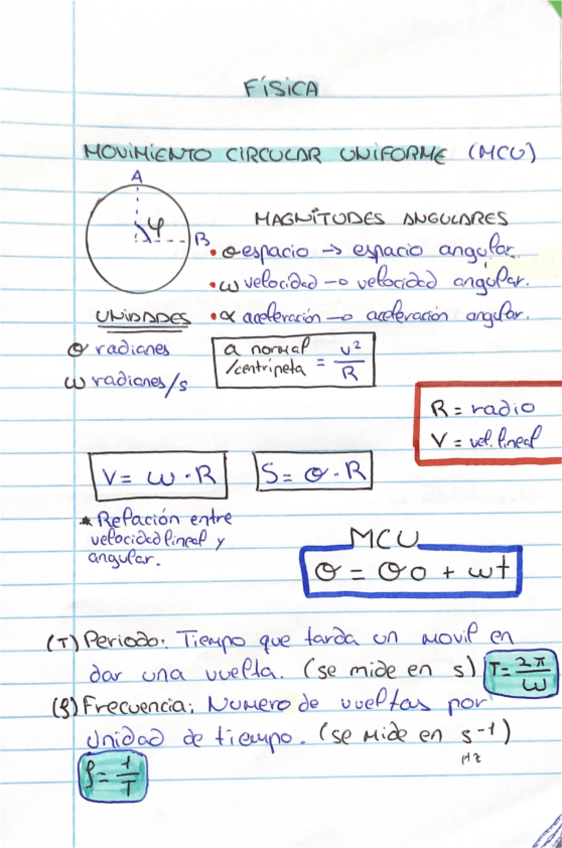 FÍSICA
MOVIMIENTO CIRCULAR UNIFORME (MCU)
A
φ
B
MAGNITUDES ANGULARES
• θ espacio → espacio angular.
• ω velocidad → velocidad angular.
• α aceleración → aceleración angular.
UNIDADES
θ radianes
ω radianes/s
a normal/centrípeta = v²/R
R = radio
V = vel. lineal
V = ω · R
S = θ · R
* Relación entre
velocidad lineal y
angular.
MCU
θ = θo + ωt
(T) Periodo: Tiempo que tarda un movil en
dar una vuelta. (se mide en s) T = 2π/ω
(f) Frecuencia: Numero de vueltas por
unidad de tiempo. (se mide en s⁻¹)
Hz
f = 1/T